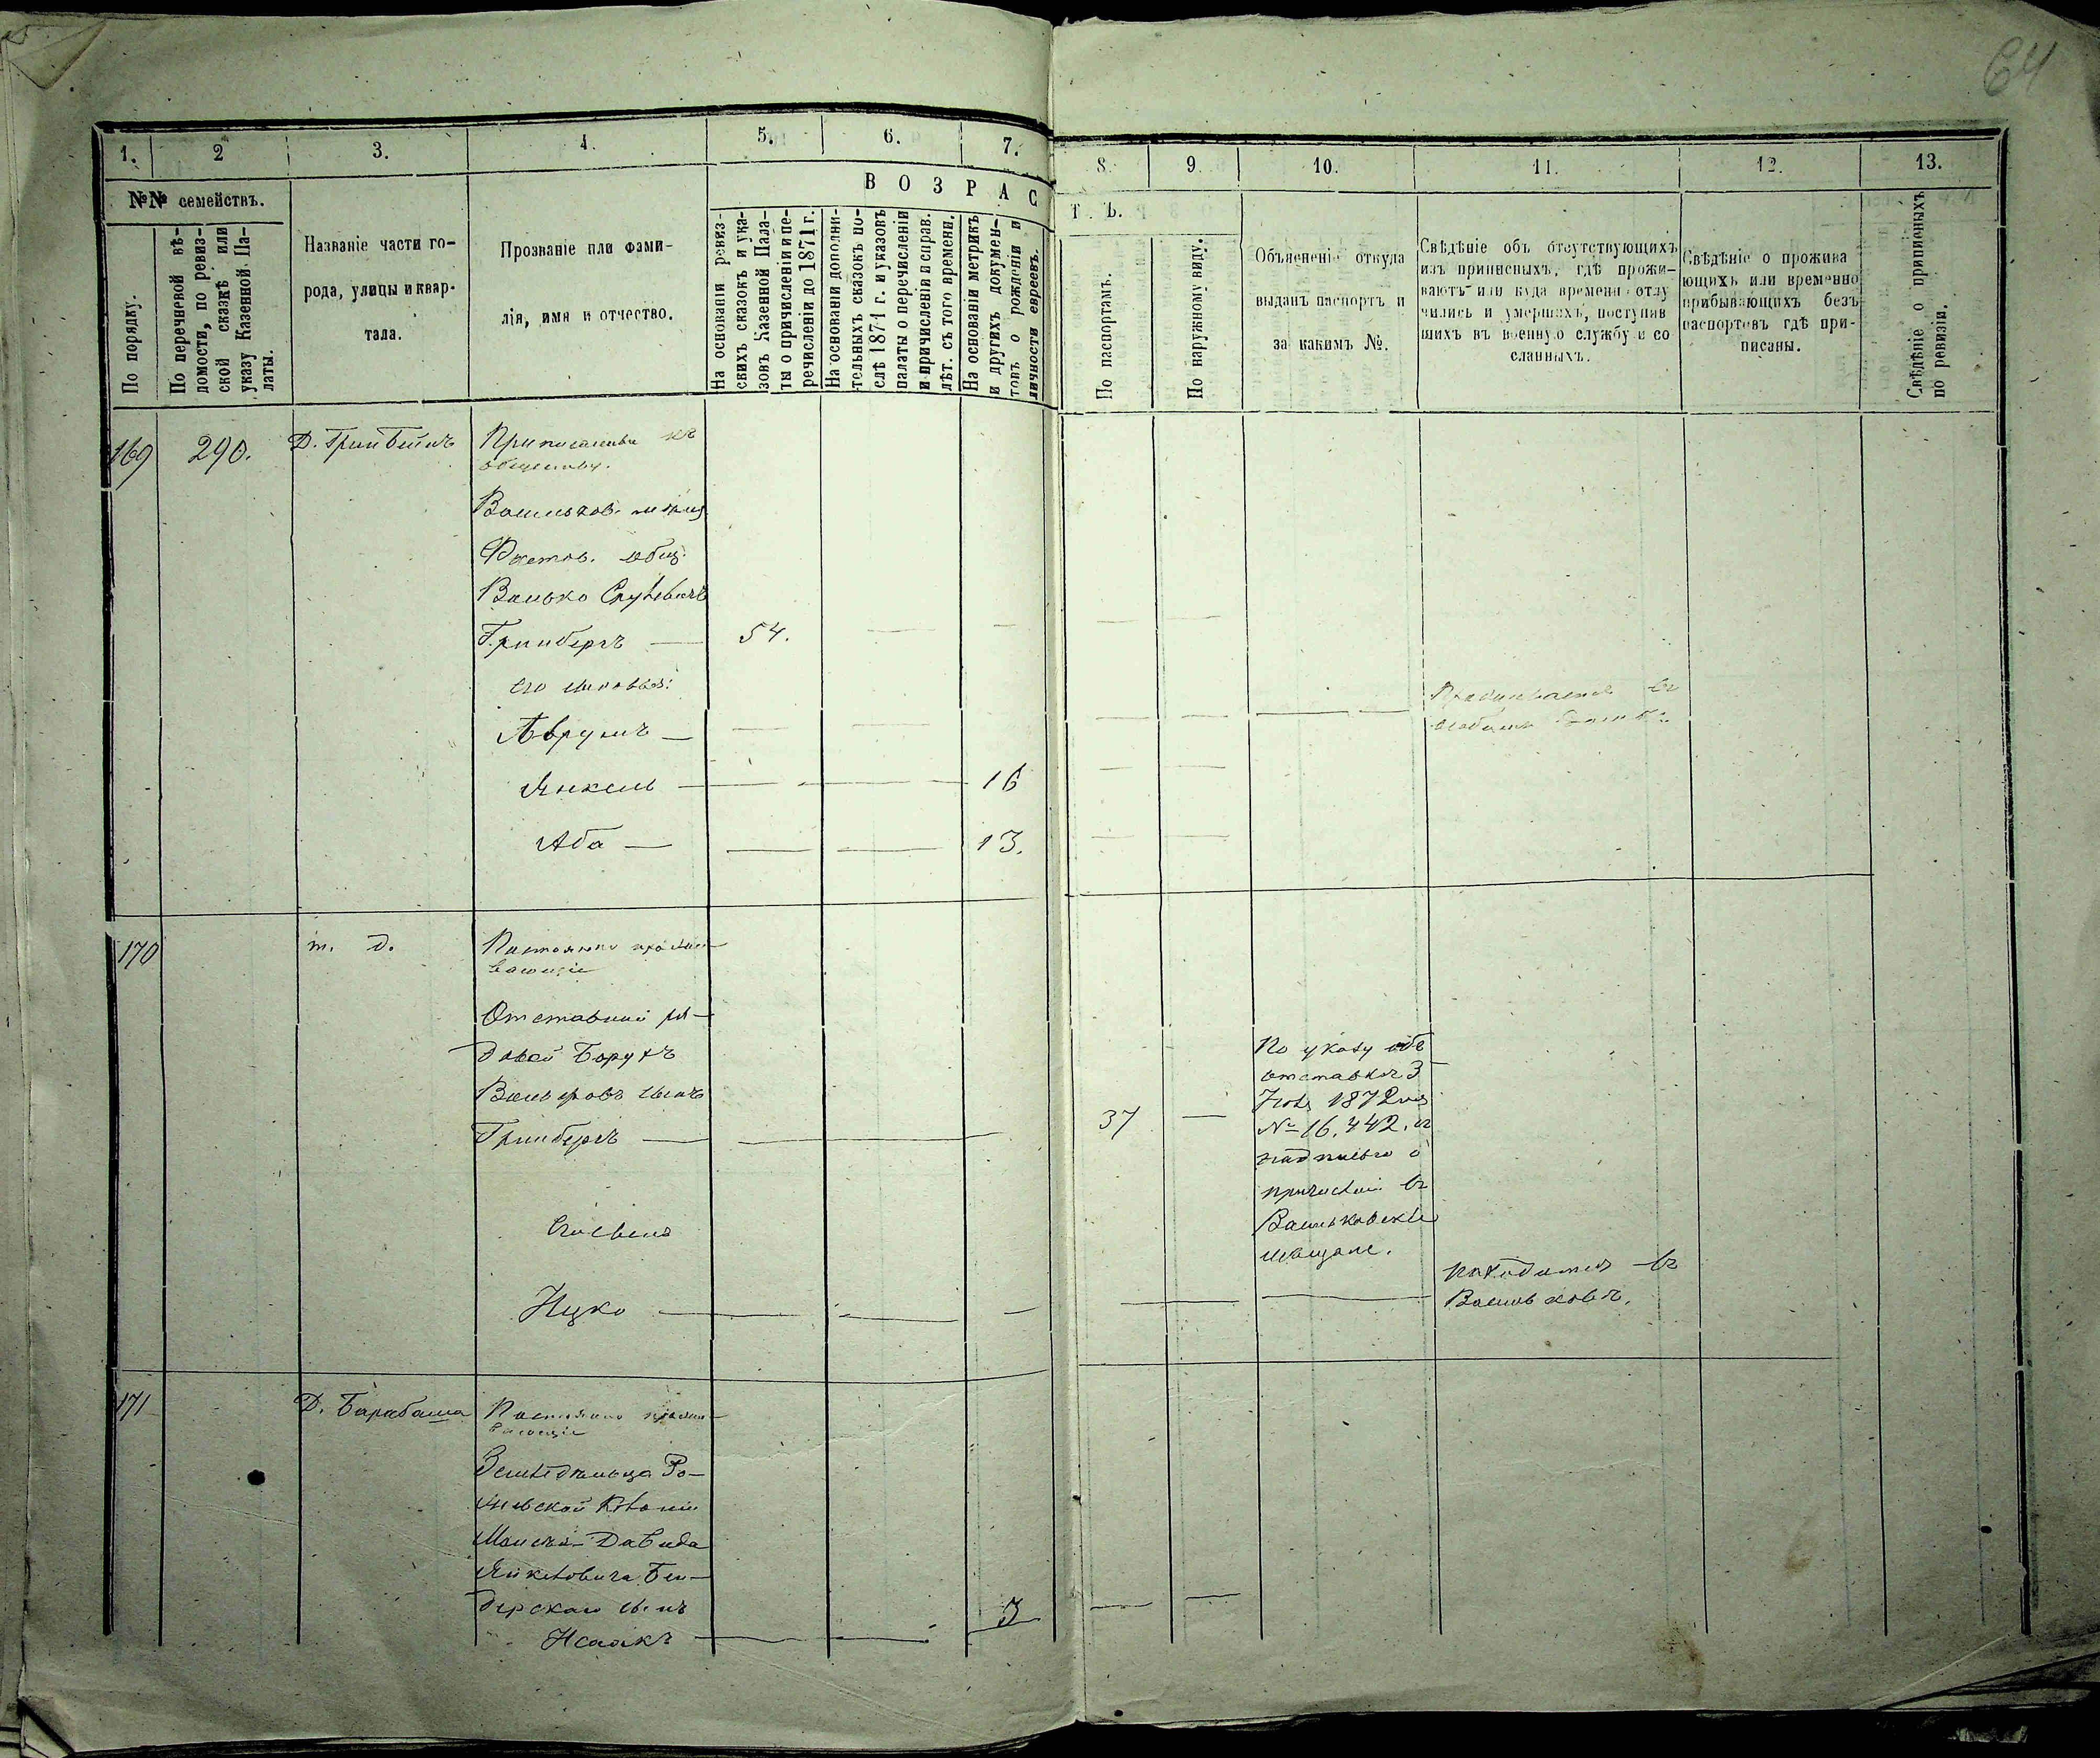 64
1.
2
3.
4.
5.
6.
7.
8.
9.
10.
11.
12.
13.
№№ семействъ.
По порядку.
По перечневой вѣ-
домости, по ревиз-
ской сказкѣ или
указу Казенной Па-
латы.
Названіе части го-
рода, улицы и квар-
тала.
Прозваніе или фами-
лія, имя и отчество.
ВОЗРАС
Т Ъ.
На основаніи ревиз-
скихъ сказокъ и ука-
зовъ Казенной Пала-
ты о причисленіи и пе-
речисленіи до 1871 г.
На основаніи дополни-
тельныхъ сказокъ по-
слѣ 1871 г. и указовъ
палаты о перечисленіи
и причисленіи и справ.
лѣт. съ того времени.
На основаніи метрикъ
и другихъ докумен-
товъ о рожденіи и
личности евреевъ.
По паспортамъ.
По наружному виду.
Объясненіе откуда
выданъ паспортъ и
за какимъ №.
Свѣдѣніе объ отсутствующихъ
изъ приписныхъ, гдѣ прожи-
ваютъ или куда времени отлу
чились и умершихъ, поступив
шихъ въ военную службу и со
сланныхъ.
Свѣдѣніе о прожива
ющихъ или временно
прибывающихъ безъ
паспортовъ гдѣ при-
писаны.
Свѣдѣніе о приписныхъ
по ревизіи.
169
290.
Приписанные къ
обществу.
Фастов. общ.
Гринбергъ
54.
его сыновья:
Аврумъ
въ
Янкель
16
Аба
13.
170
т. д.
Постоянно прожи-
вающіе
Отставной ря-
довой Борухъ
сынъ
Гринбергъ
37
По указу объ
отставкѣ 3
1872
№ 16.442. съ
надписью о
въ
мѣщане.
Его сынъ
Ицко
находится въ
Васильковѣ.
171
Д. Барабаша
Постоянно прожи-
вающіе
Земледѣльца Ро-
Давида
Янкелевича Бен-
дерскаго сынъ
Исаакъ
3